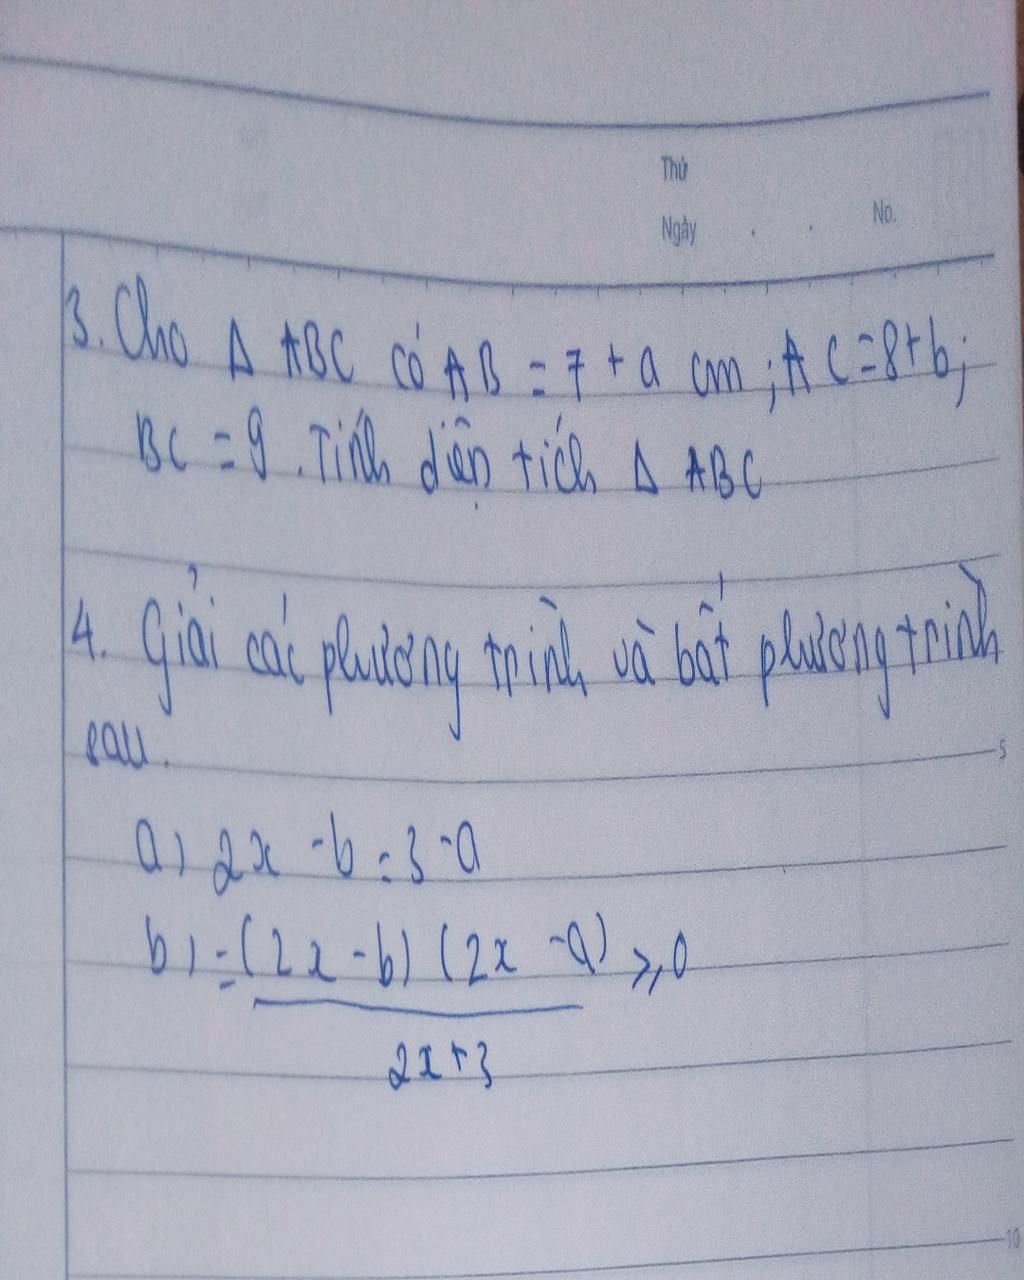 Thứ
Ngày . . No.
3. Cho Δ ABC có AB = 7 + a cm ; AC = 8 + b ;
BC = 9 . Tính diện tích Δ ABC
4. Giải các phương trình và bất phương trình
sau .
5
a) 2x - b = 3 - a
b) = (2x - b) (2x - a) ≥ 0
2x + 3
10